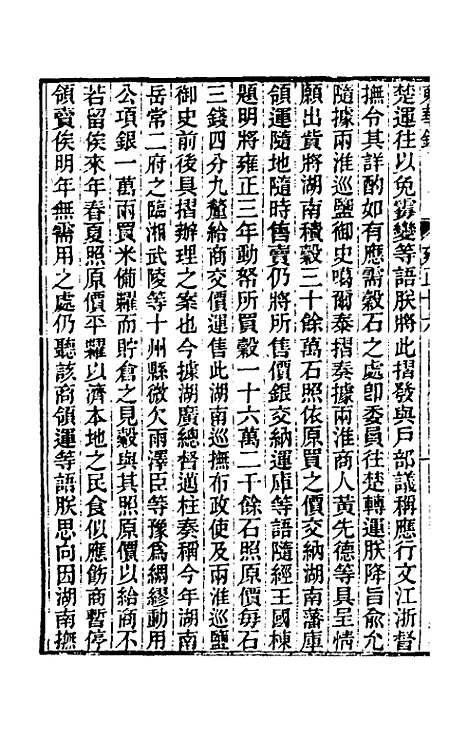 楚運往以免霉變等語朕將此摺發與戸部議稱應行文江浙督
撫令其詳酌如有應需穀石之處卽委員往楚轉運朕降旨俞允
隨據兩淮巡鹽御史噶爾泰摺奏據兩淮商人黃先德等具呈情
願出貲將湖南積穀三十餘萬石照依原買之價交納湖南藩庫
領運隨地隨時售賣仍將所售價銀交納運庫等語隨經王國棟
題明將雍正三年動帑所買穀一十六萬二千餘石照原價每石
三錢四分九釐給商交價運售此湖南巡撫布政使及兩淮巡鹽
御史前後具摺辦理之案也今據湖廣總督邁柱奏稱今年湖南
岳常二府之臨湘武陵等十州縣微欠雨澤臣等豫爲綢繆動用
公項銀一萬兩買米備糶而貯倉之見穀與其照原價以給商不
若留俟來年春夏照原價平糶以濟本地之民食似應飭商暫停
領賣俟明年無需用之處仍聽該商領運等語朕思向因湖南撫